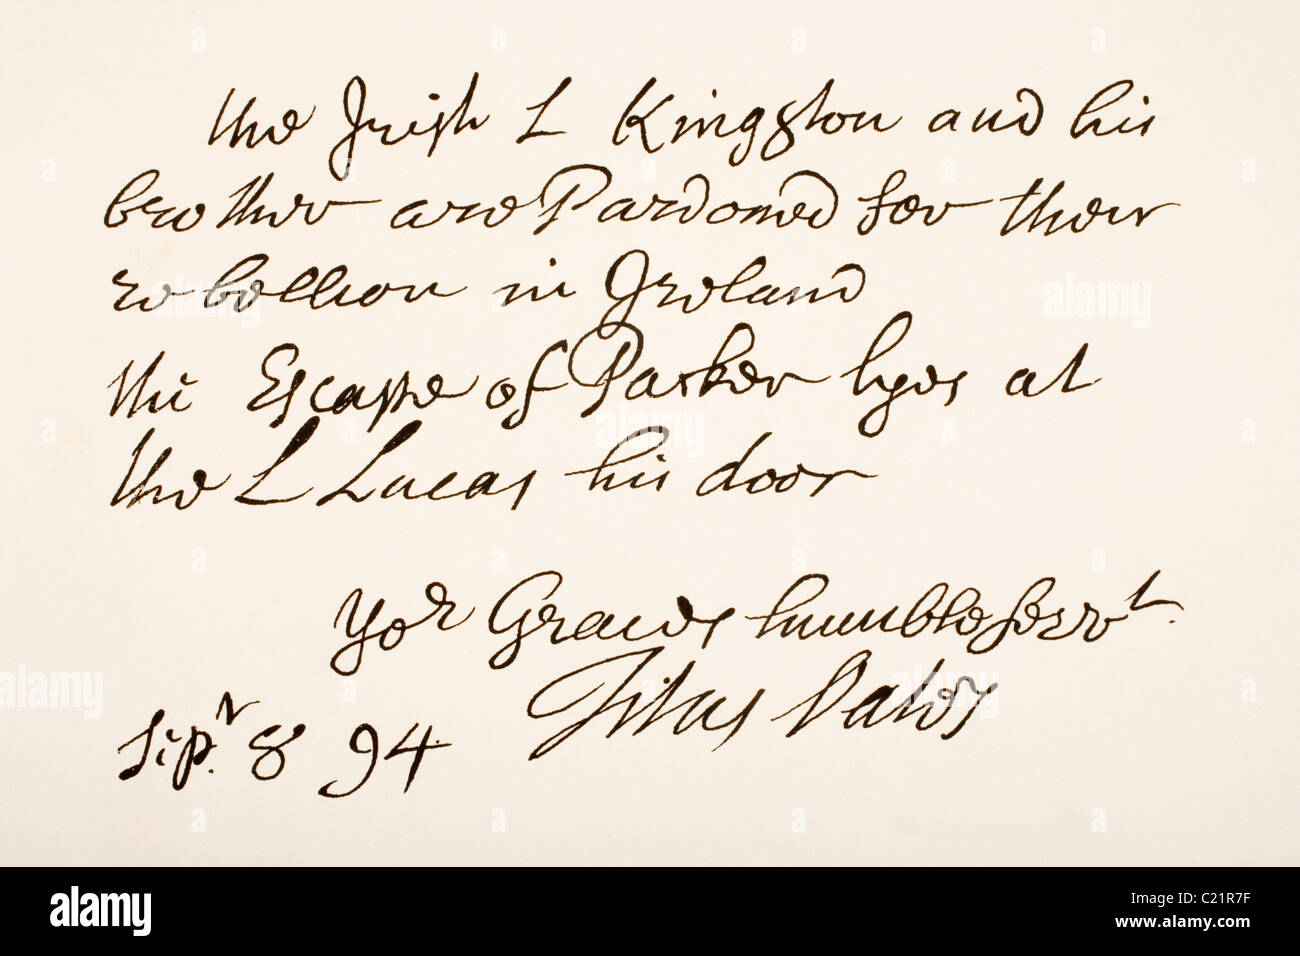 the Irish L Kingston and his
brother are Pardoned for their
rebellion in Ireland
the Escape of Parker lyes at
the L Lucas his door
Yor Graces humble servt.
Titus Oates
Sepr. 8 94
alamy
Image ID: C21R7F
www.alamy.com